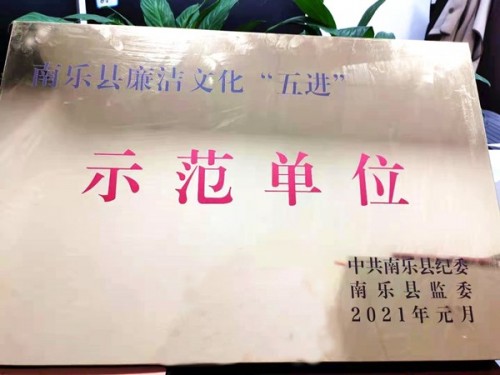 南乐县廉洁文化“五进”
示范单位
中共南乐县纪委
南乐县监委
2021年元月